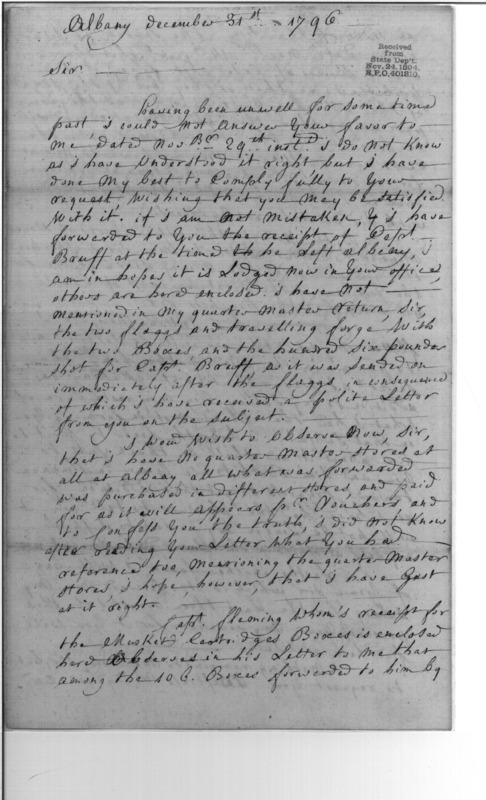 Albany december 31st 1796
Received
from
State Dep't.
Nov. 24, 1894.
R.P.O. 401810.
Sir
having been unwell for sometime
past i could not answer Your favor to
me, dated Novber 29th inst. i do not Know
as i have Understood it right but i have
done My best to Comply fully to Your
request, wishing that you may be satisfied
With it. if i am not mistaken, i have
forwarded to You the receipt of Capt.
Bruff at the time he left albany, i
am in hopes it is Lodged now in Your office,
others are here enclosed. i have Not
mentioned in My quarter Master return, Sir,
the two flaggs and travelling forge With
the two Boxes and the hundred six pounder
shot for Capt. Bruff, as it was sended on
immediately after the flaggs in consequence
of which i have received a polite Letter
from you on the subject.
i Wou'd Wish to observe Now, Sir,
that i have No quarter Master stores at
all at albany all what was forwarded
was purchased in different stores, and paid
for as it will appears pr. Vouchers, and
to Confess You the truth, i did not Know
after reading Your Letter what You had
reference too, mentioning the quarter Master
stores, i hope, however, that i have Gust
at it right.
Capt. fleming Whom's receipt for
the Musket Cartridges Boxes is enclosed
here observes in his Letter to me that
among the 10 C. Boxes forwarded to him by